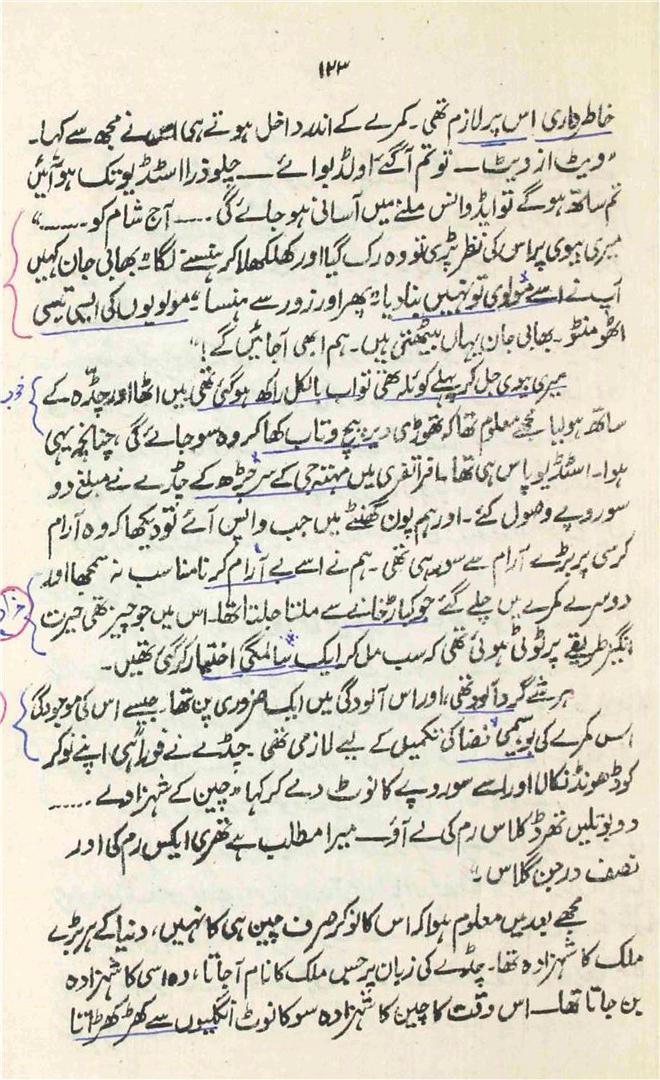 ۱۲۳
خاطرداری اس پر لازم تھی۔ کمرے کے اندر داخل ہوتے ہی اس نے مجھ سے کہا۔
”ویٹ از ویٹ — تو تم آگئے اولڈ بوائے — چلو ذرا اسٹڈیو تک ہو آئیں
تم ساتھ ہوگے تو ایڈوانس ملنے میں آسانی ہو جائے گی ..... آج شام کو ......“
میری بیوی پر اس کی نظر پڑی تو وہ رک گیا اور کھلکھلا کر ہنسنے لگا ”بھابی جان کہیں
آپ نے اسے مولوی تو نہیں بنا دیا“ پھر اور زور سے ہنسا ”مولویوں کی ایسی تیسی
اٹھو منٹو۔ بھابی جان یہاں بیٹھتی ہیں۔ ہم ابھی آجائیں گے!“
میری بیوی جل کر پہلے کوئلہ تھی تو اب بالکل راکھ ہوگئی تھی میں اٹھا اور چڈہ کے
ساتھ ہولیا مجھے معلوم تھا کہ تھوڑی دیر پیچ و تاب کھا کر وہ سو جائے گی، چنانچہ یہی
ہوا۔ اسٹڈیو پاس ہی تھا۔ افراتفری میں مہتہ جی کے سر چڑھ کے چڈے نے مبلغ دو
سو روپے وصول کئے۔ اور ہم پون گھنٹے میں جب واپس آئے تو دیکھا کہ وہ آرام
کرسی پر بڑے آرام سے سو رہی تھی۔ ہم نے اسے بے آرام کرنا مناسب نہ سمجھا اور
دوسرے کمرے میں چلے گئے جو کباڑخانے سے ملتا جلتا تھا۔ اس میں جو چیز تھی حیرت
انگیز طریقے پر ٹوٹی ہوئی تھی کہ سب مل کر ایک سالمگی اختیار کر گئی تھیں۔
ہر شے گرد آلود تھی، اور اس آلودگی میں ایک ضروری پن تھا۔ جیسے اس کی موجودگی
اس کمرے کی بوہیمی فضا کی تکمیل کے لیے لازمی تھی۔ چڈے نے فوراً ہی اپنے نوکر
کو ڈھونڈ نکالا اور اسے سو روپے کا نوٹ دے کر کہا ”چین کے شہزادے .....
دو بوتلیں تھرڈ کلاس رم کی لے آؤ — میرا مطلب ہے تھری ایکس رم کی اور
نصف درجن گلاس۔“
مجھے بعد میں معلوم ہوا کہ اس کا نوکر صرف چین ہی کا نہیں، دنیا کے ہر بڑے
ملک کا شہزادہ تھا۔ چڈے کی زبان پر جس ملک کا نام آجاتا، وہ اسی کا شہزادہ
بن جاتا تھا — اس وقت کا چین کا شہزادہ سو کا نوٹ انگلیوں سے کھڑکھڑاتا